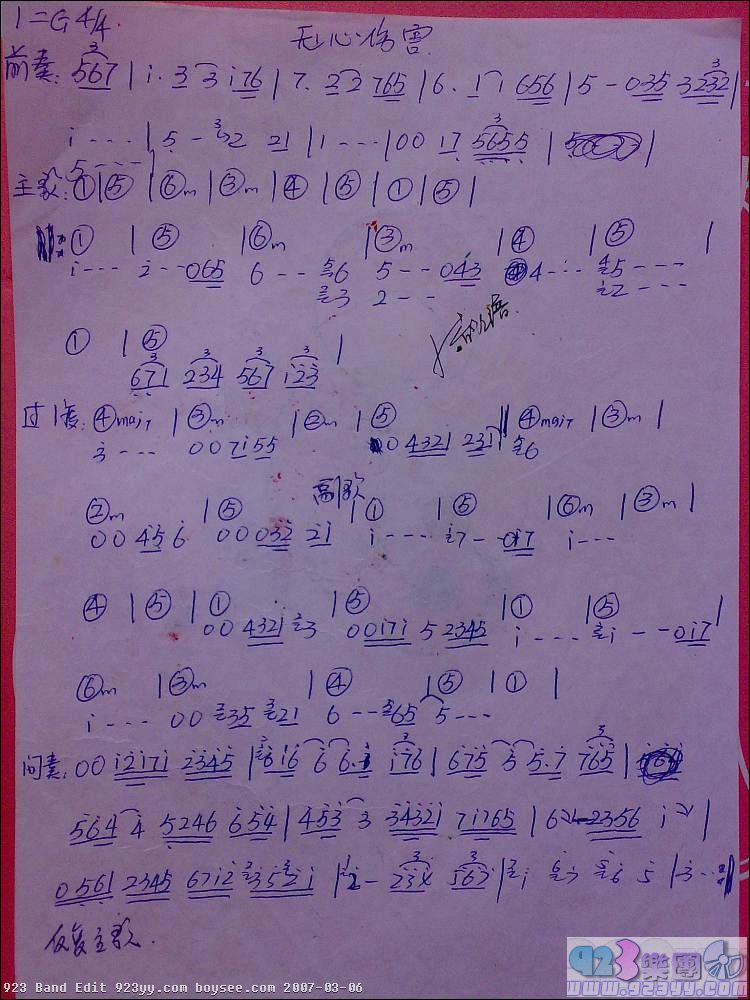 1=G 4/4.
无心伤害
前奏: 567 | i. 3 3 i76 | 7. 22 765 | 6. 1 i 656 | 5 - 035 3232 |
i - - - | 5 - 32 21 | 1 - - - | 00 17 5655 |
5 - - -
主歌: ① | ⑤ | ⑥m | ③m | ④ | ⑤ | ① | ⑤ |
① | ⑤ | ⑥m | ③m | ④ | ⑤ |
i - - - i - - 065 6 - - 6 5 - - 043 4 - - - 5 - - -
3 2 - - 2 - - -
① | ⑤ |
671 234 567 i23
过度: ④maj7 | ③m | ②m | ⑤ || ④maj7 | ③m |
3 - - - 0 0 7i55 0 0 4321 231 6
副歌
②m | ⑤ | ① | ⑤ | ⑥m | ③m |
0 0 45 6 0 0 032 2i i - - - i7 - - 0i7 i - - -
④ | ⑤ | ① | ⑤ | ① | ⑤ |
0 0 4321 3 00i7i 5 2345 i - - - i - - 0i7
⑥m | ③m | ④ | ⑤ | ① |
i - - - 0 0 35 21 6 - - 65 5 - - -
间奏: 00 i2i7i 2345 | i6 6 6. i i76 | 675 5 5.7 765 |
564 4 5246 654 | 453 3 34321 7i765 | 6 2356 i |
0561 2345 6712 352i | 2 - 234 567 | i 7 6 5 | 3 - - :||
反复主歌.
923 Band Edit 923yy.com boysee.com 2007-03-06
923樂團
www.923yy.com